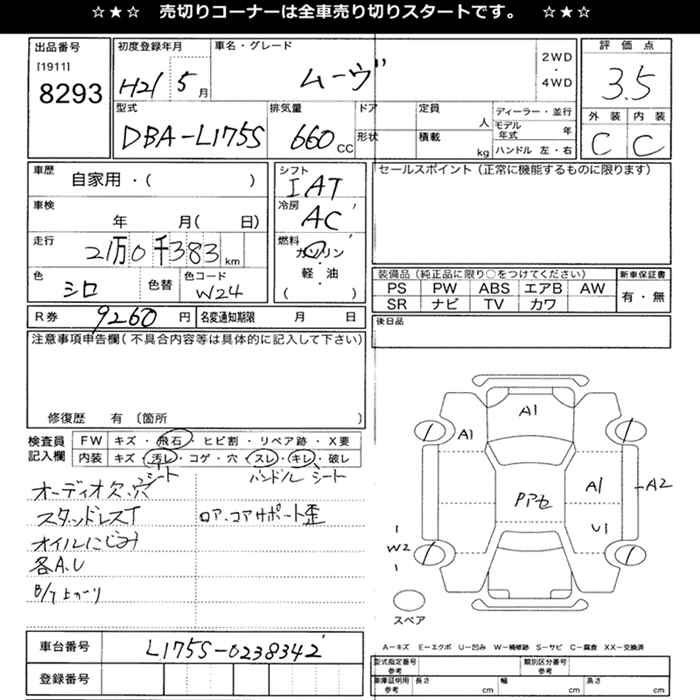 ☆★☆ 売切りコーナーは全車売り切りスタートです。 ☆★☆
出品番号 初度登録年月 車名・グレード 2WD・4WD 評価点
[1911]
8293 H21 5月 ムーヴ 3.5
型式 排気量 ドア 定員 人 ディーラー・並行 外装 内装
DBA-L175S 660cc 形状 積載 kg モデル年式 年 C C
ハンドル 左・右
車歴 自家用・( ) シフト IAT セールスポイント(正常に機能するものに限ります)
車検 年 月( 日) 冷房 AC
走行 21万0千383km 燃料 ガソリン・軽油 ( )
色 シロ 色替 色コード W24
装備品(純正品に限り○をつけてください) 新車保証書
PS PW ABS エアB AW 有・無
SR ナビ TV カワ
R券 9260円 名変通知期限 月 日 後日品
注意事項申告欄(不具合内容等は具体的に記入して下さい)
修復歴 有 〔箇所 〕
検査員記入欄 FW キズ・飛石・ヒビ割・リペア跡・X要
内装 キズ・汚レ・コゲ・穴・スレ・キレ・破レ
シート ハンドル シート
オーディオ欠.穴
スタッドレスT ロア.コアサポート歪
オイルにじみ
各A.U
A1
A1
A1 A2
Pアセ
U1
W2
スペア
A-キズ E-エクボ U-凹み W-補修跡 S-サビ C-腐食 XX-交換済
車台番号 L175S-0238342
型式指定番号 参考 類別区分番号 参考
登録番号 車庫証明用 参考 長さ cm 幅 cm 高さ cm